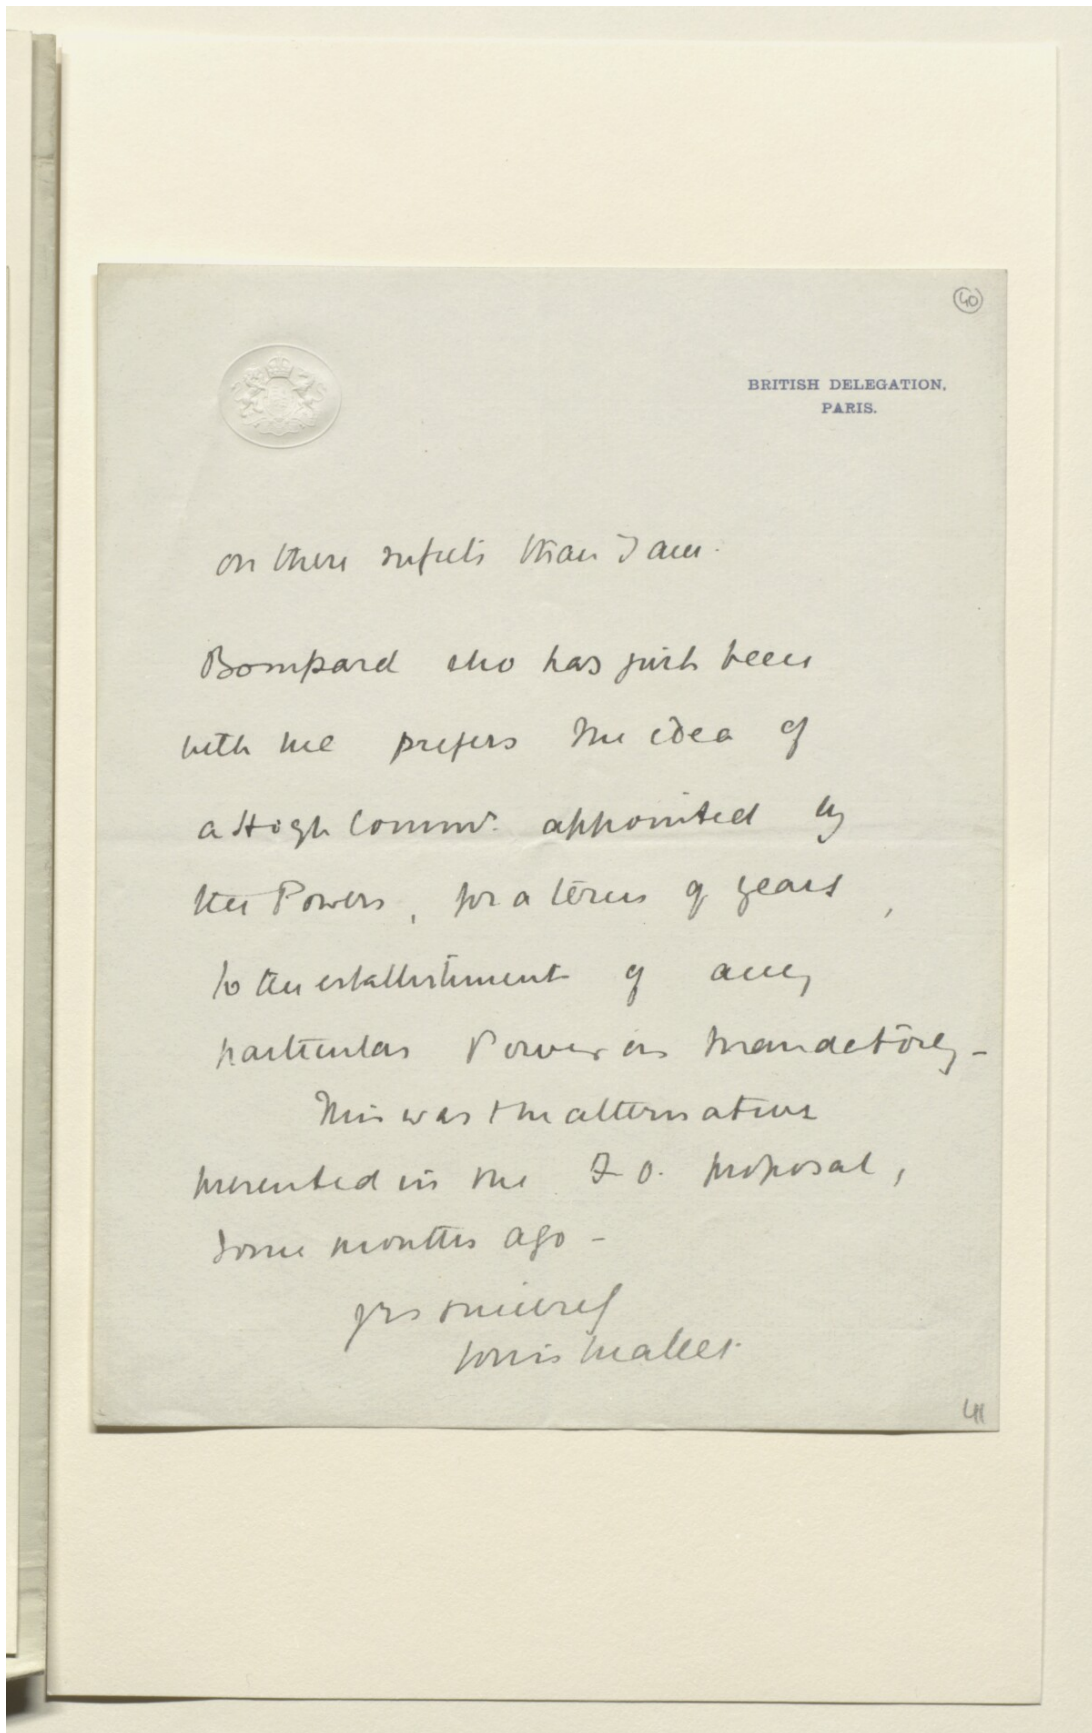 40
BRITISH DELEGATION,
PARIS.
on these subjects than I am.
Bompard who has just been
with me prefers the idea of
a High Commr. appointed by
the Powers, for a term of years,
to the establishment of any
particular Power as Mandatory -
This was the alternative
presented in the F.O. proposal,
some months ago -
yrs sincerely
Louis Mallet.
41